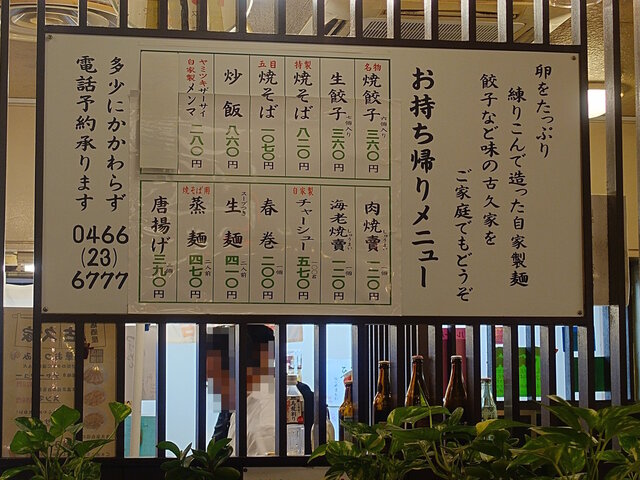 卵をたっぷり
練りこんで造った自家製麺
餃子など味の古久家を
ご家庭でもどうぞ
お持ち帰りメニュー
名物 焼餃子 六個入り 三六〇円
生餃子 七個入り 三六〇円
特製 焼そば 八二〇円
五目 焼そば 一〇七〇円
炒飯 八六〇円
ヤミツキザーサイ
自家製メンマ 二八〇円
肉焼賣 しゅうまい 一個 一二〇円
海老焼賣 しゅうまい 一個 一二〇円
自家製 チャーシュー 一〇〇g 五七〇円
春巻 一個 二〇〇円
生麺 スープつき 一人前 四一〇円
焼そば用 蒸麺 二人前 四七〇円
唐揚げ 三九〇円
多少にかかわらず
電話予約承ります
0466
(23)
6777
古久家